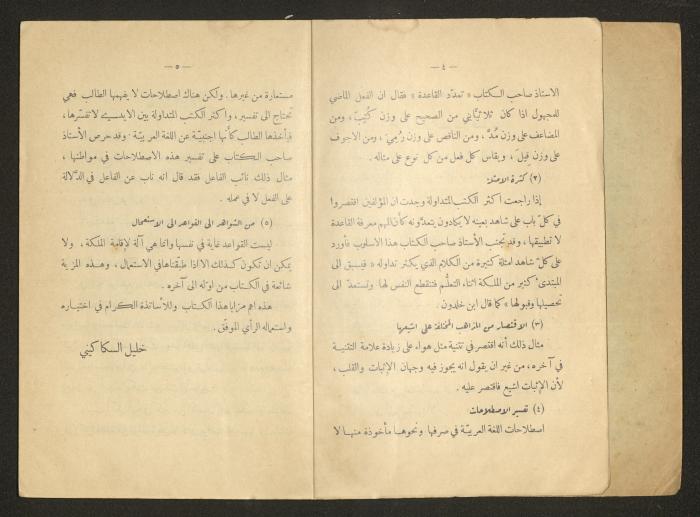 — ٤ —
الاستاذ صاحب الكتاب « تمدّد القاعدة » فقال ان الفعل الماضي
للمجهول اذا كان ثلاثيًّا من الصحيح على وزن كُتِبَ، ومن
المضاعف على وزن مُدَّ، ومن الناقص على وزن رُمِيَ، ومن الاجوف
على وزن قِيلَ، ويقاس كل فعل من كل نوع على مثاله.
(٢) كثرة الامثلة:
إذا راجعت أكثر الكتب المتداولة وجدت ان المؤلفين اقتصروا
في كلّ باب على شاهد بعينه لا يكادون يتعدّونه كأنّ المهم معرفة القاعدة
لا تطبيقها، وقد تجنب الأستاذ صاحب الكتاب هذا الاسلوب فأورد
على كلّ شاهد امثلة كثيرة من الكلام الذي يكثر تداوله « فيسبق الى
المبتدىء كثير من الملكة اثناء التعلّم فتنقطع النفس لها وتستعدّ الى
تحصيلها وقبولها » كما قال ابن خلدون.
(٣) الاقتصار من المذاهب المختلفة على اشيعها
مثال ذلك أنه اقتصر في تثنية مثل هواء على زيادة علامة التثنية
في آخره، من غير ان يقول انه يجوز فيه وجهان الإثبات والقلب،
لأن الإثبات اشيع فاقتصر عليه.
(٤) تفسير الاصطلاحات
اصطلاحات اللغة العربيّة في صرفها ونحوها مأخوذة منها لا
— ٥ —
مستعارة من غيرها. ولكن هناك اصطلاحات لا يفهمها الطالب فهي
تحتاج الى تفسير، واكثر الكتب المتداولة بين الايدي لا تفسّرها،
فيأخذها الطالب كأنها اجنبيّة عن اللغة العربيّة. وقد حرص الأستاذ
صاحب الكتاب على تفسير هذه الاصطلاحات في مواطنها،
مثال ذلك نائب الفاعل فقد قال انه ناب عن الفاعل في الدّلالة
على الفعل لا في عمله.
(٥) من الشواهد الى القواعد الى الاستعمال
ليست القواعد غاية في نفسها وانما هي آلة لإقامة الملكة، ولا
يمكن ان تكون كذلك الا اذا طبّقناها في الاستعمال، وهذه المزية
شائعة في الكتاب من اوله الى آخره.
هذه اهم مزايا هذا الكتاب وللأساتذة الكرام في اختياره
واستعماله الرأي الموفق.
خليل السكاكيني